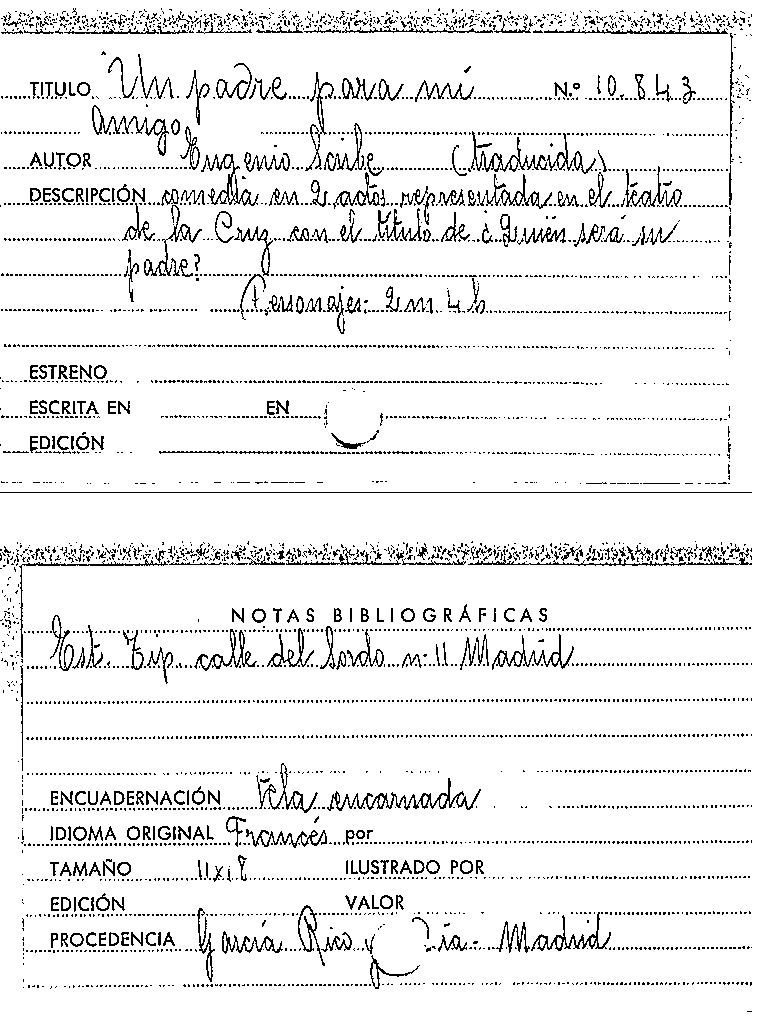 TITULO Un padre para mi N.º 10.843
amigo
AUTOR Eugenio Scribe (traducida)
DESCRIPCIÓN comedia en 2 actos representada en el teatro
de la Cruz con el título de ¿Quién será su
padre?
Personajes: 2 m 4 h
ESTRENO
ESCRITA EN EN
EDICIÓN
NOTAS BIBLIOGRÁFICAS
Est. Tip. calle del Sordo n. 11 Madrid
ENCUADERNACIÓN Tela encarnada
IDIOMA ORIGINAL Francés por
TAMAÑO 11x18 ILUSTRADO POR
EDICIÓN VALOR
PROCEDENCIA García Rico y - Madrid